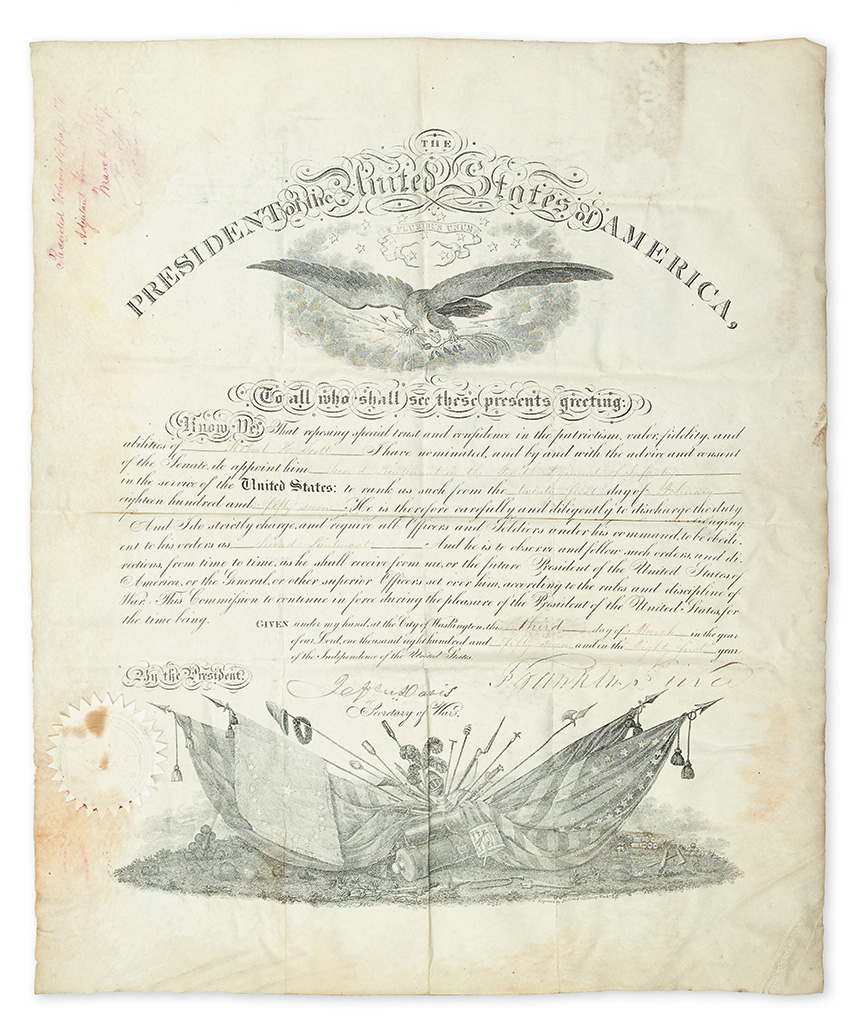 THE
PRESIDENT of the United States of AMERICA,
E PLURIBUS UNUM
To all who shall see these presents greeting:
Know Ye, That reposing special trust and confidence in the patriotism, valor, fidelity, and
abilities of Robert I have nominated, and by and with the advice and consent
of the Senate, do appoint him Second Lieutenant in the Regiment of
in the service of the United States: to rank as such from the twenty first day of February
eighteen hundred and fifty seven. He is therefore carefully and diligently to discharge the duty
And I do strictly charge, and require all Officers and Soldiers under his command, to be obedi-
ent to his orders as Second Lieutenant And he is to observe and follow such orders, and di-
rections, from time to time, as he shall receive from me, or the future President of the United States of
America, or the General, or other superior Officers set over him, according to the rules and discipline of
War. This Commission to continue in force during the pleasure of the President of the United States, for
the time being.
GIVEN under my hand, at the City of Washington, this third day of March in the year
of our Lord, one thousand eight hundred and fifty seven and in the eighty first year
of the Independence of the United States.
By the President,
Franklin Pierce
Jeffn Davis
Secretary of War.
Adjutant
March